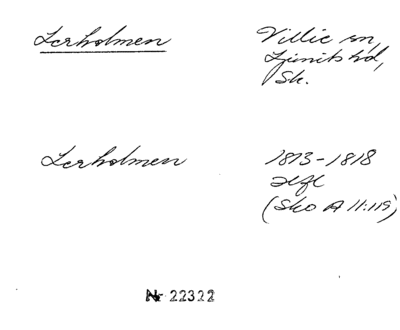 Lerholmen
Villie sn,
Ljunits hd,
Sk.
Lerholmen
1813-1818
Hfl
(Sko A 11:119)
Nr 22322